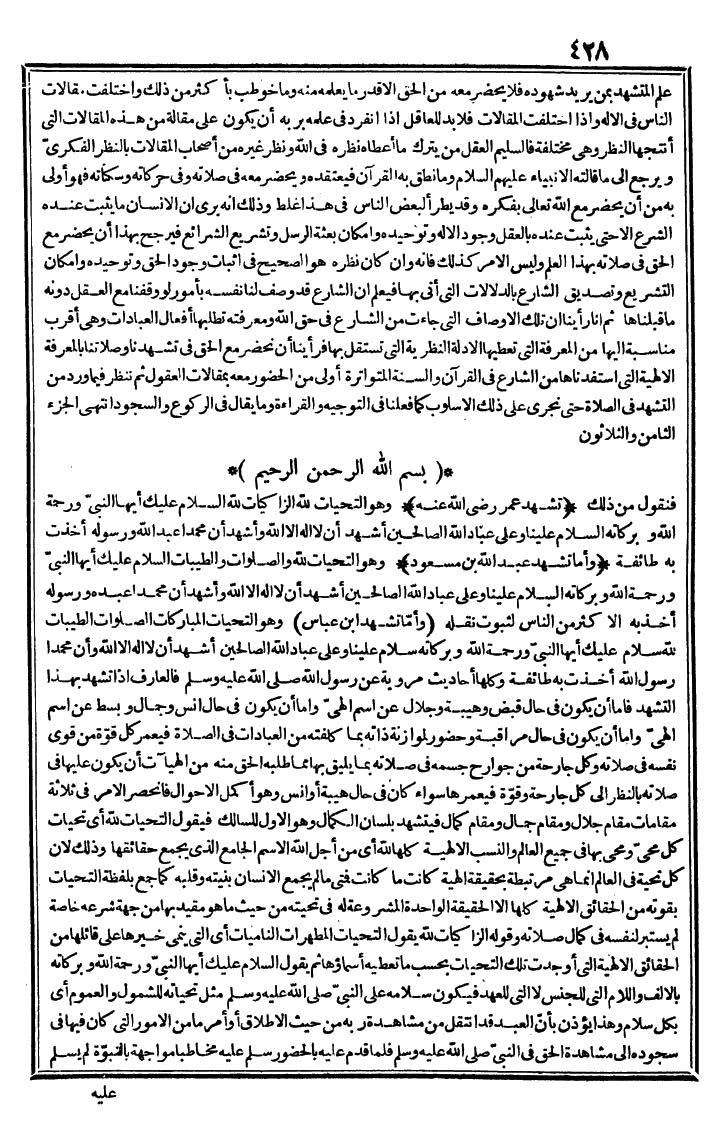 ٤٢٨
علم المتشهد بمن يريد شهوده فلا يحضر معه من الحق الا قدر ما يعلمه منه وما خوطب بأكثر من ذلك واختلفت مقالات
الناس فى الاله واذا اختلفت المقالات فلا بد للعاقل اذا انفرد فى علمه بربه أن يكون على مقالة من هذه المقالات التى
أنتجها النظر وهى مختلفة فالسليم العقل من يترك ما أعطاه نظره فى الله ونظر غيره من أصحاب المقالات بالنظر الفكرىّ
ويرجع الى ما قالته الانبياء عليهم السلام وما نطق به القرآن فيعتقده ويحضر معه فى صلاته وفى حركاته وسكناته فهو أولى
به من أن يحضر مع الله تعالى بفكره وقد يطرأ لبعض الناس فى هذا غلط وذلك انه يرى ان الانسان ما يثبت عنده
الشرع الا حتى يثبت عنده بالعقل وجود الاله وتوحيده وامكان بعثة الرسل وتشريع الشرائع فيرجح بهذا أن يحضر مع
الحق فى صلاته بهذا العلم وليس الامر كذلك فانه وان كان نظره هو الصحيح فى اثبات وجود الحق وتوحيده وامكان
التشريع وتصديق الشارع بالدلالات التى أتى بها فيعلم ان الشارع قد وصف لنا نفسه بأمور لو وقفنا مع العقل دونه
ما قبلناها ثم انا رأينا ان تلك الاوصاف التى جاءت من الشارع فى حق الله ومعرفته تطلبها أفعال العبادات وهى أقرب
مناسبة اليها من المعرفة التى تعطيها الادلة النظرية التى تستقل بها فرأينا أن نحضر مع الحق فى تشهدنا وصلاتنا بالمعرفة
الالهية التى استفدناها من الشارع فى القرآن والسنة المتواترة أولى من الحضور معه بمقالات العقول ثم ننظر فيما ورد من
التشهد فى الصلاة حتى نجرى على ذلك الاسلوب كما فعلنا فى التوجيه والقراءة وما يقال فى الركوع والسجود انتهى الجزء
الثامن والثلاثون
*( بسم الله الرحمن الرحيم )*
فنقول من ذلك ﴿تشهد عمر رضى الله عنه﴾ وهو التحيات لله الزاكيات لله السلام عليك أيها النبىّ ورحمة
الله وبركاته السلام علينا وعلى عباد الله الصالحين أشهد أن لا اله الا الله وأشهد أن محمدا عبد الله ورسوله أخذت
به طائفة ﴿وأما تشهد عبد الله بن مسعود﴾ وهو التحيات لله والصلوات والطيبات السلام عليك أيها النبىّ
ورحمة الله وبركاته السلام علينا وعلى عباد الله الصالحين أشهد أن لا اله الا الله وأشهد أن محمدا عبده ورسوله
أخذ به الاكثر من الناس لثبوت نقله (وأمّا تشهد ابن عباس) وهو التحيات المباركات الصلوات الطيبات
لله سلام عليك أيها النبىّ ورحمة الله وبركاته سلام علينا وعلى عباد الله الصالحين أشهد أن لا اله الا الله وأن محمدا
رسول الله أخذت به طائفة وكلها أحاديث مروية عن رسول الله صلى الله عليه وسلم فالعارف اذا تشهد بهذا
التشهد فاما أن يكون فى حال قبض وهيبة وجلال عن اسم الهىّ واما أن يكون فى حال انس وجمال وبسط عن اسم
الهىّ واما أن يكون فى حال مراقبة وحضور لموازنة ذاته بما كلفته من العبادات فى الصلاة فيعمر كل قوّة من قوى
نفسه فى صلاته وكل جارحة من جوارح جسمه فى صلاته بما يليق بها مما طلبه الحق منه من الهيآت أن يكون عليها فى
صلاته بالنظر الى كل جارحة وقوّة فيعمرها سواء كان فى حال هيبة أو انس وهو أكمل الاحوال فانحصر الامر فى ثلاثة
مقامات مقام جلال ومقام جمال ومقام كمال فيتشهد بلسان الكمال وهو الاول للسالك فيقول التحيات لله أى تحيات
كل محىّ ومحيى بها فى جميع العالم والنسب الالهية كلها لله أى من أجل الله الاسم الجامع الذى يجمع حقائقها وذلك لان
كل تحية فى العالم انما هى مرتبطة بحقيقة الهية كانت ما كانت فتى مالم يجمع الانسان بنيته وقلبه كما جمع بلفظة التحيات
بقوته من الحقائق الالهية كلها الا الحقيقة الواحدة المشروعة له فى تحيته من حيث ما هو مقيد بها من جهة شرعه خاصة
لم يستبر لنفسه فى كمال صلاته وقوله الزاكيات لله يقول التحيات المطهرات الناميات أى التى ينمى خيرها على قائلها من
الحقائق الالهية التى أوجدت تلك التحيات بحسب ما تعطيه أسماؤها ثم يقول السلام عليك أيها النبىّ ورحمة الله وبركاته
بالالف واللام التى للجنس لا التى للعهد فيكون سلامه على النبىّ صلى الله عليه وسلم مثل تحياته للشمول والعموم أى
بكل سلام وهذا يؤذن بأنّ العبد قد انتقل من مشاهدة ربه من حيث الاطلاق أو أمر ما من الامور التى كان فيها فى
سجوده الى مشاهدة الحق فى النبىّ صلى الله عليه وسلم فلما قدم عليه بالحضور سلم عليه مخاطبا مواجهة بالنبوّة لم يسلم
عليه